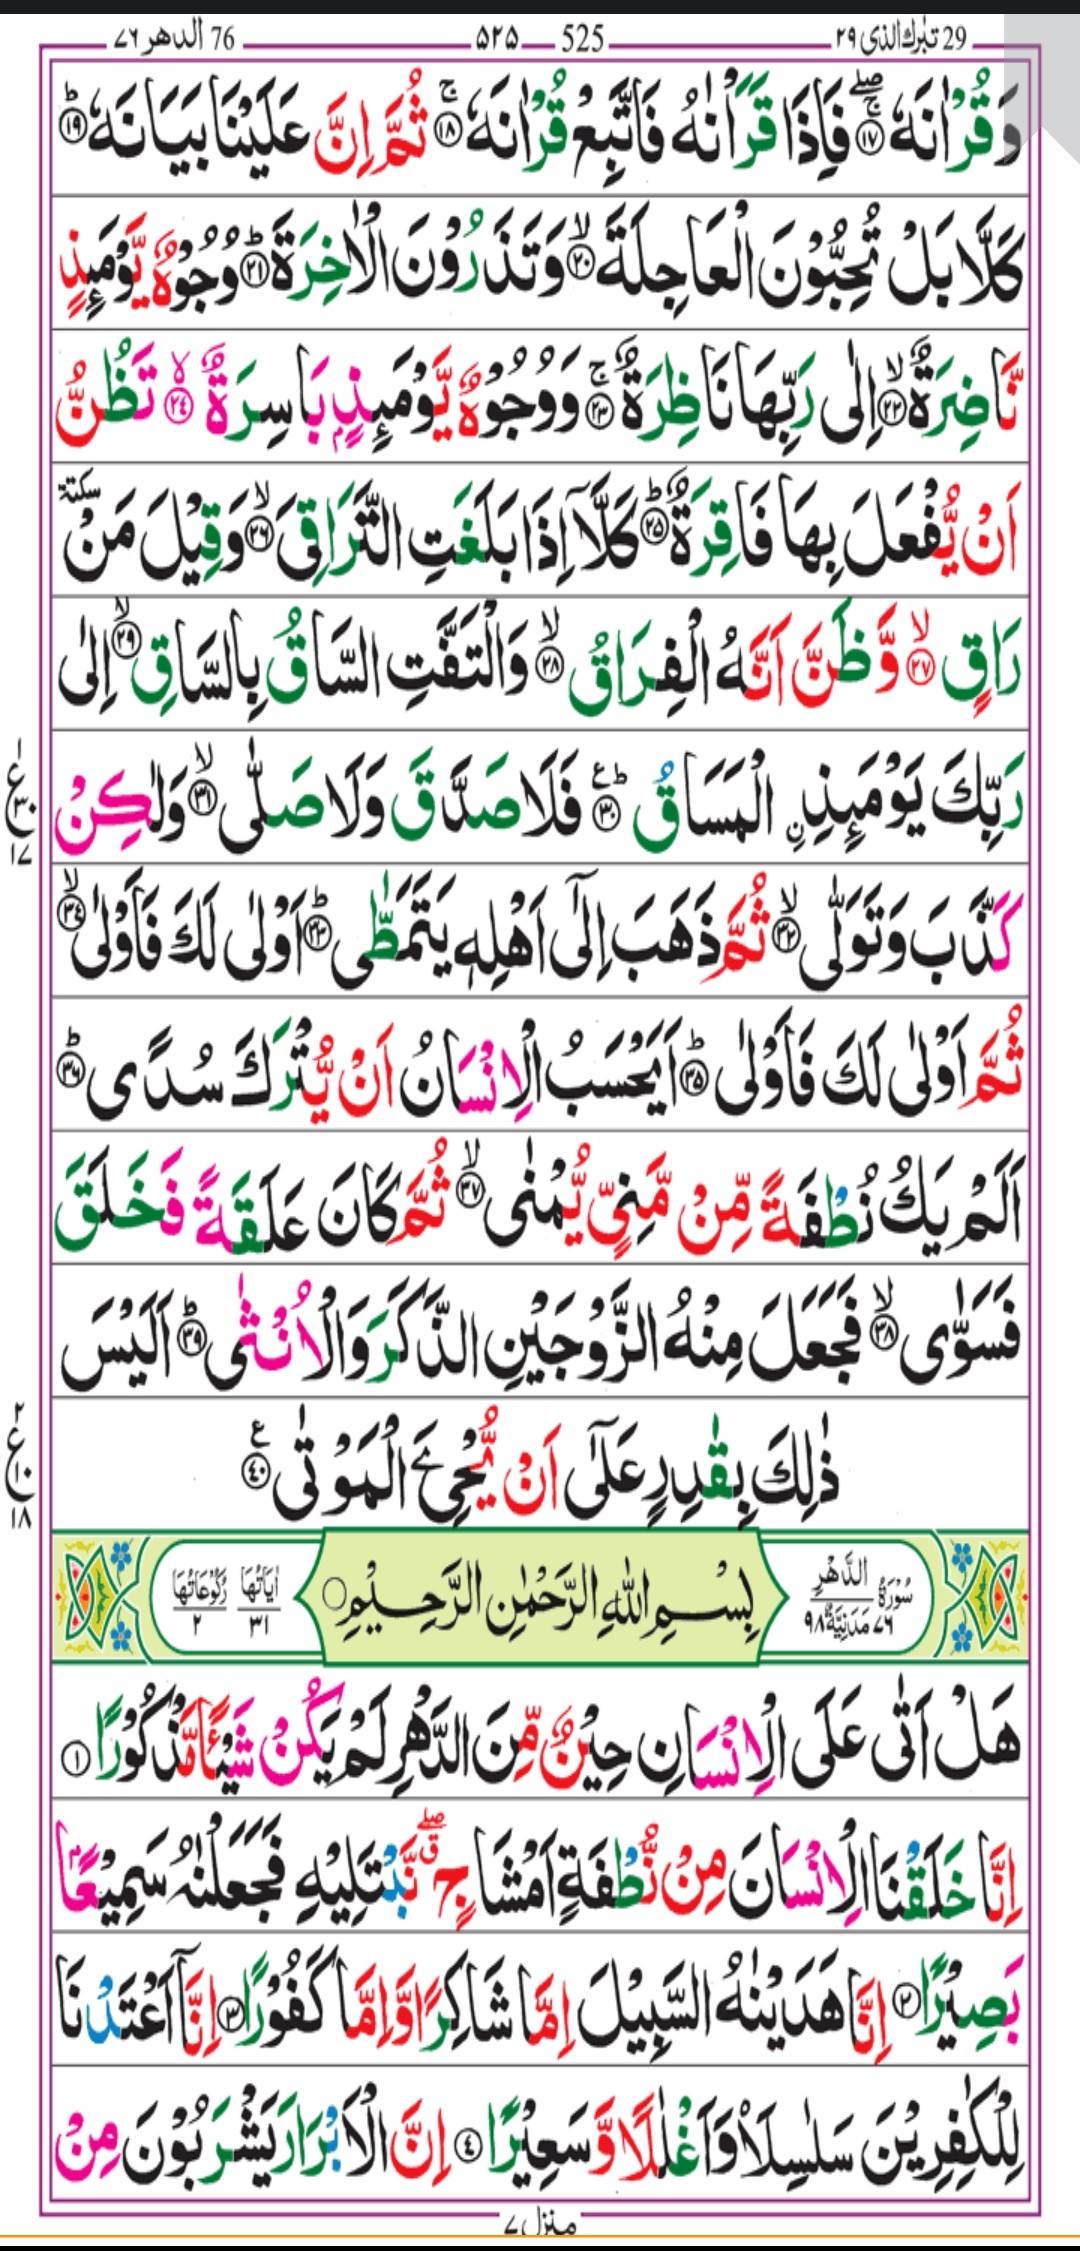 29 تبٰرك الذی ٢٩ 525 ۵۲۵ 76 الدهر ٧٦
وَ قُرْاٰنَهٗ ۚۖ ﴿١٧﴾ فَاِذَا قَرَاْنٰهُ فَاتَّبِعْ قُرْاٰنَهٗ ۚ ﴿١٨﴾ ثُمَّ اِنَّ عَلَيْنَا بَيَانَهٗ ؕ ﴿١٩﴾
كَلَّا بَلْ تُحِبُّوْنَ الْعَاجِلَةَ ۙ ﴿٢٠﴾ وَ تَذَرُوْنَ الْاٰخِرَةَ ؕ ﴿٢١﴾ وُجُوْهٌ يَّوْمَىِٕذٍ
نَّاضِرَةٌ ۙ ﴿٢٢﴾ اِلٰى رَبِّهَا نَاظِرَةٌ ۚ ﴿٢٣﴾ وَ وُجُوْهٌ يَّوْمَىِٕذٍۭ بَاسِرَةٌ ۙ ﴿٢٤﴾ تَظُنُّ
اَنْ يُّفْعَلَ بِهَا فَاقِرَةٌ ؕ ﴿٢٥﴾ كَلَّاۤ اِذَا بَلَغَتِ التَّرَاقِيَ ۙ ﴿٢٦﴾ وَ قِيْلَ مَنْ سكتة
رَاقٍ ۙ ﴿٢٧﴾ وَّ ظَنَّ اَنَّهُ الْفِرَاقُ ۙ ﴿٢٨﴾ وَ الْتَفَّتِ السَّاقُ بِالسَّاقِ ۙ ﴿٢٩﴾ اِلٰى
رَبِّكَ يَوْمَىِٕذِ ِ۟الْمَسَاقُ ؕ ع ﴿٣٠﴾ فَلَا صَدَّقَ وَ لَا صَلّٰى ۙ ﴿٣١﴾ وَ لٰكِنْ
١ ع ٣٠ ١٧
كَذَّبَ وَ تَوَلّٰى ۙ ﴿٣٢﴾ ثُمَّ ذَهَبَ اِلٰۤى اَهْلِهٖ يَتَمَطّٰى ؕ ﴿٣٣﴾ اَوْلٰى لَكَ فَاَوْلٰى ۙ ﴿٣٤﴾
ثُمَّ اَوْلٰى لَكَ فَاَوْلٰى ؕ ﴿٣٥﴾ اَيَحْسَبُ الْاِنْسَانُ اَنْ يُّتْرَكَ سُدًى ؕ ﴿٣٦﴾
اَلَمْ يَكُ نُطْفَةً مِّنْ مَّنِيٍّ يُّمْنٰى ۙ ﴿٣٧﴾ ثُمَّ كَانَ عَلَقَةً فَخَلَقَ
فَسَوّٰى ۙ ﴿٣٨﴾ فَجَعَلَ مِنْهُ الزَّوْجَيْنِ الذَّكَرَ وَ الْاُنْثٰى ؕ ﴿٣٩﴾ اَلَيْسَ
ذٰلِكَ بِقٰدِرٍ عَلٰۤى اَنْ يُّحْيِۦَ الْمَوْتٰى ع ﴿٤٠﴾
٢ ع ١٠ ١٨
سُوْرَةُ الدَّهْرِ ٧٦ مَدَنِيَّةٌ ٩٨
بِسْمِ اللهِ الرَّحْمٰنِ الرَّحِيْمِ
اٰيَاتُهَا ٣١ رُكُوْعَاتُهَا ٢
هَلْ اَتٰى عَلَى الْاِنْسَانِ حِيْنٌ مِّنَ الدَّهْرِ لَمْ يَكُنْ شَيْـًٔا مَّذْكُوْرًا ﴿١﴾
اِنَّا خَلَقْنَا الْاِنْسَانَ مِنْ نُّطْفَةٍ اَمْشَاجٍ ۖق نَّبْتَلِيْهِ فَجَعَلْنٰهُ سَمِيْعًۢا
بَصِيْرًا ﴿٢﴾ اِنَّا هَدَيْنٰهُ السَّبِيْلَ اِمَّا شَاكِرًا وَّ اِمَّا كَفُوْرًا ﴿٣﴾ اِنَّاۤ اَعْتَدْنَا
لِلْكٰفِرِيْنَ سَلٰسِلَا۟ وَ اَغْلٰلًا وَّ سَعِيْرًا ﴿٤﴾ اِنَّ الْاَبْرَارَ يَشْرَبُوْنَ مِنْ
منزل ٧